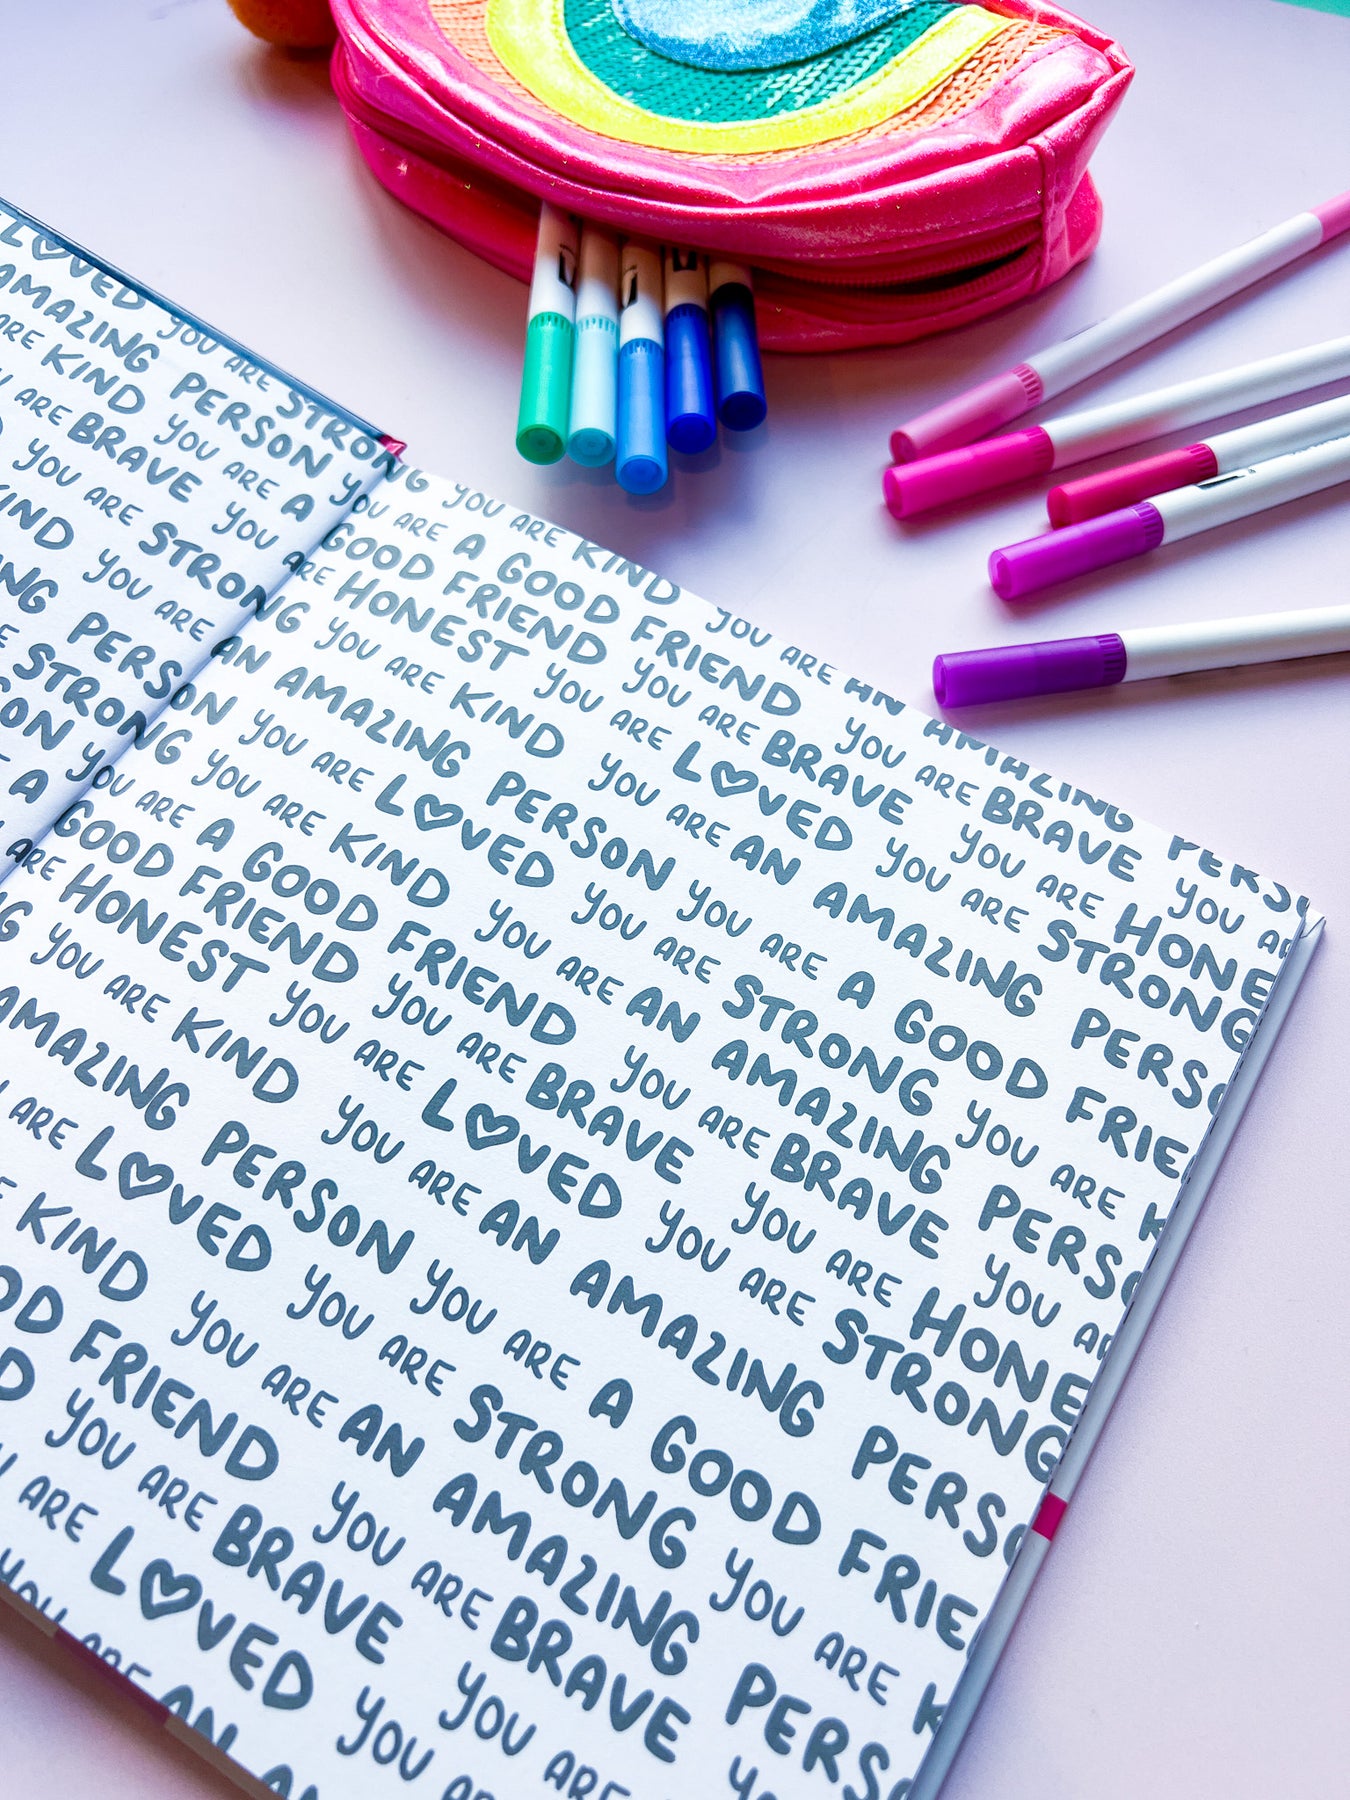 LOVED YOU ARE STRONG YOU ARE KIND YOU ARE AN AMAZING PERS
AMAZING PERSON YOU ARE A GOOD FRIEND YOU ARE BRAVE YOU AR
ARE KIND YOU ARE A GOOD FRIEND YOU ARE BRAVE YOU ARE HONE
ARE BRAVE YOU ARE HONEST YOU ARE LOVED YOU ARE STRONG
YOU ARE STRONG YOU ARE KIND YOU ARE AN AMAZING PERSO
KIND YOU ARE AN AMAZING PERSON YOU ARE A GOOD FRIE
NG PERSON YOU ARE LOVED YOU ARE STRONG YOU ARE K
E STRONG YOU ARE KIND YOU ARE AN AMAZING PERSO
SON YOU ARE A GOOD FRIEND YOU ARE BRAVE YOU AR
A GOOD FRIEND YOU ARE BRAVE YOU ARE HONE
ARE HONEST YOU ARE LOVED YOU ARE STRONG
G YOU ARE KIND YOU ARE AN AMAZING PERSO
AMAZING PERSON YOU ARE A GOOD FRIE
ARE LOVED YOU ARE STRONG YOU ARE K
E KIND YOU ARE AN AMAZING PERSO
OD FRIEND YOU ARE BRAVE YOU
D YOU ARE BRAVE YOU ARE
ARE LOVED YOU AR
YOU ARE AN A